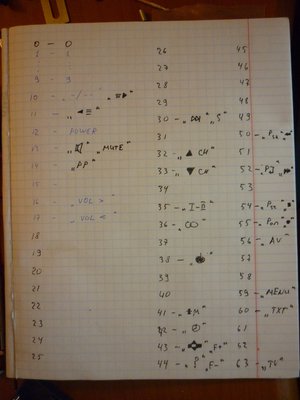 0 - 0
1 - 1
9 - 9
10 - „-/--"
11 - „
12 - POWER
13 - „ " „MUTE"
14 „PP"
15 -
16 - „VOL >"
17 - „VOL <"
18
19
20
21
22
23
24
25
26
27
28
29
30 - „ " „S"
31
32 - „▲ CH"
33 - „▼ CH"
34
35 - „I-II"
36 - „ "
37
38 - „ "
39
40
41 - „ M"
42 - „ "
43 - „ " „F+"
44 - „ " „F-"
45
46
47
48
49
50 - „
51
52 - „
53
54 - „
55 - „
56 - „AV"
57
58
59 - „MENU"
60 - „TXT"
61
62
63 - „TV"